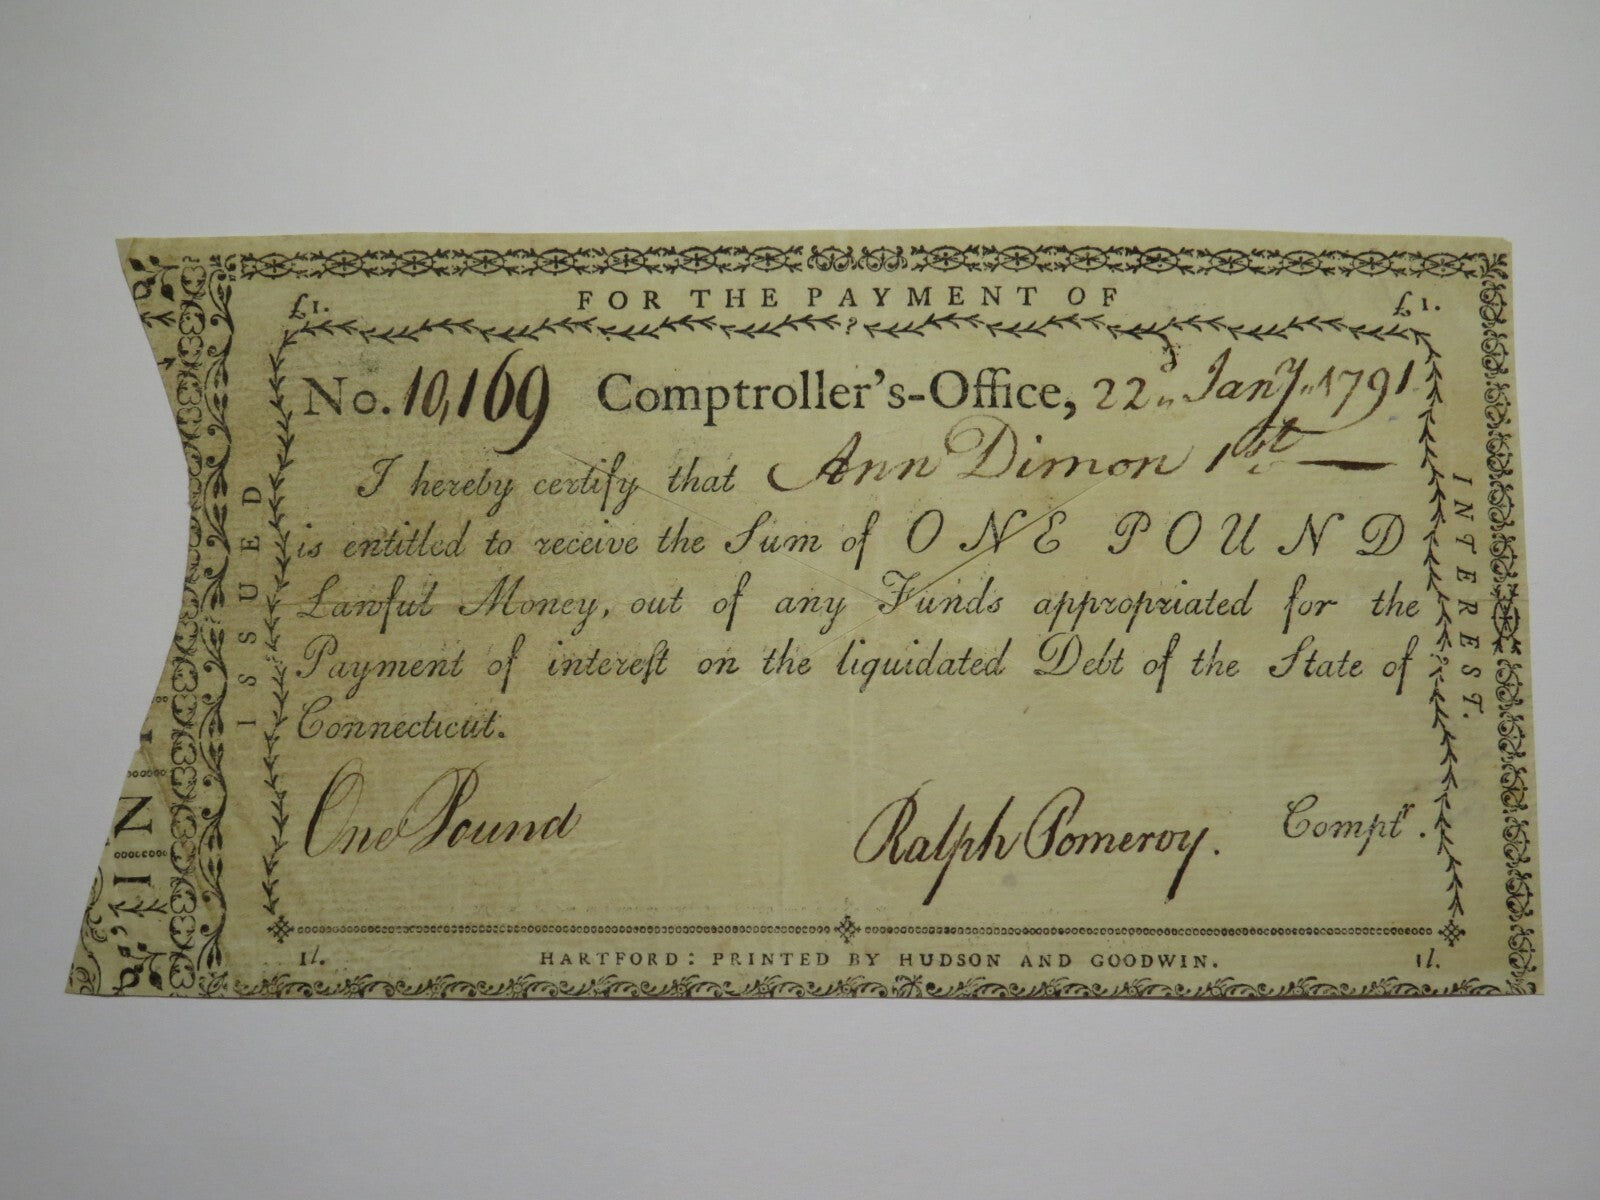 FOR THE PAYMENT OF
£1.
£1.
No. 10,169 Comptroller's-Office, 22d Jany 1791
I hereby certify that Ann Dimon 1st
is entitled to receive the Sum of ONE POUND
Lawful Money, out of any Funds appropriated for the
Payment of intereſt on the liquidated Debt of the State of
Connecticut.
One Pound
Ralph Pomeroy. Comptr.
1l.
HARTFORD: PRINTED BY HUDSON AND GOODWIN.
1l.
ISSUED
INTEREST.